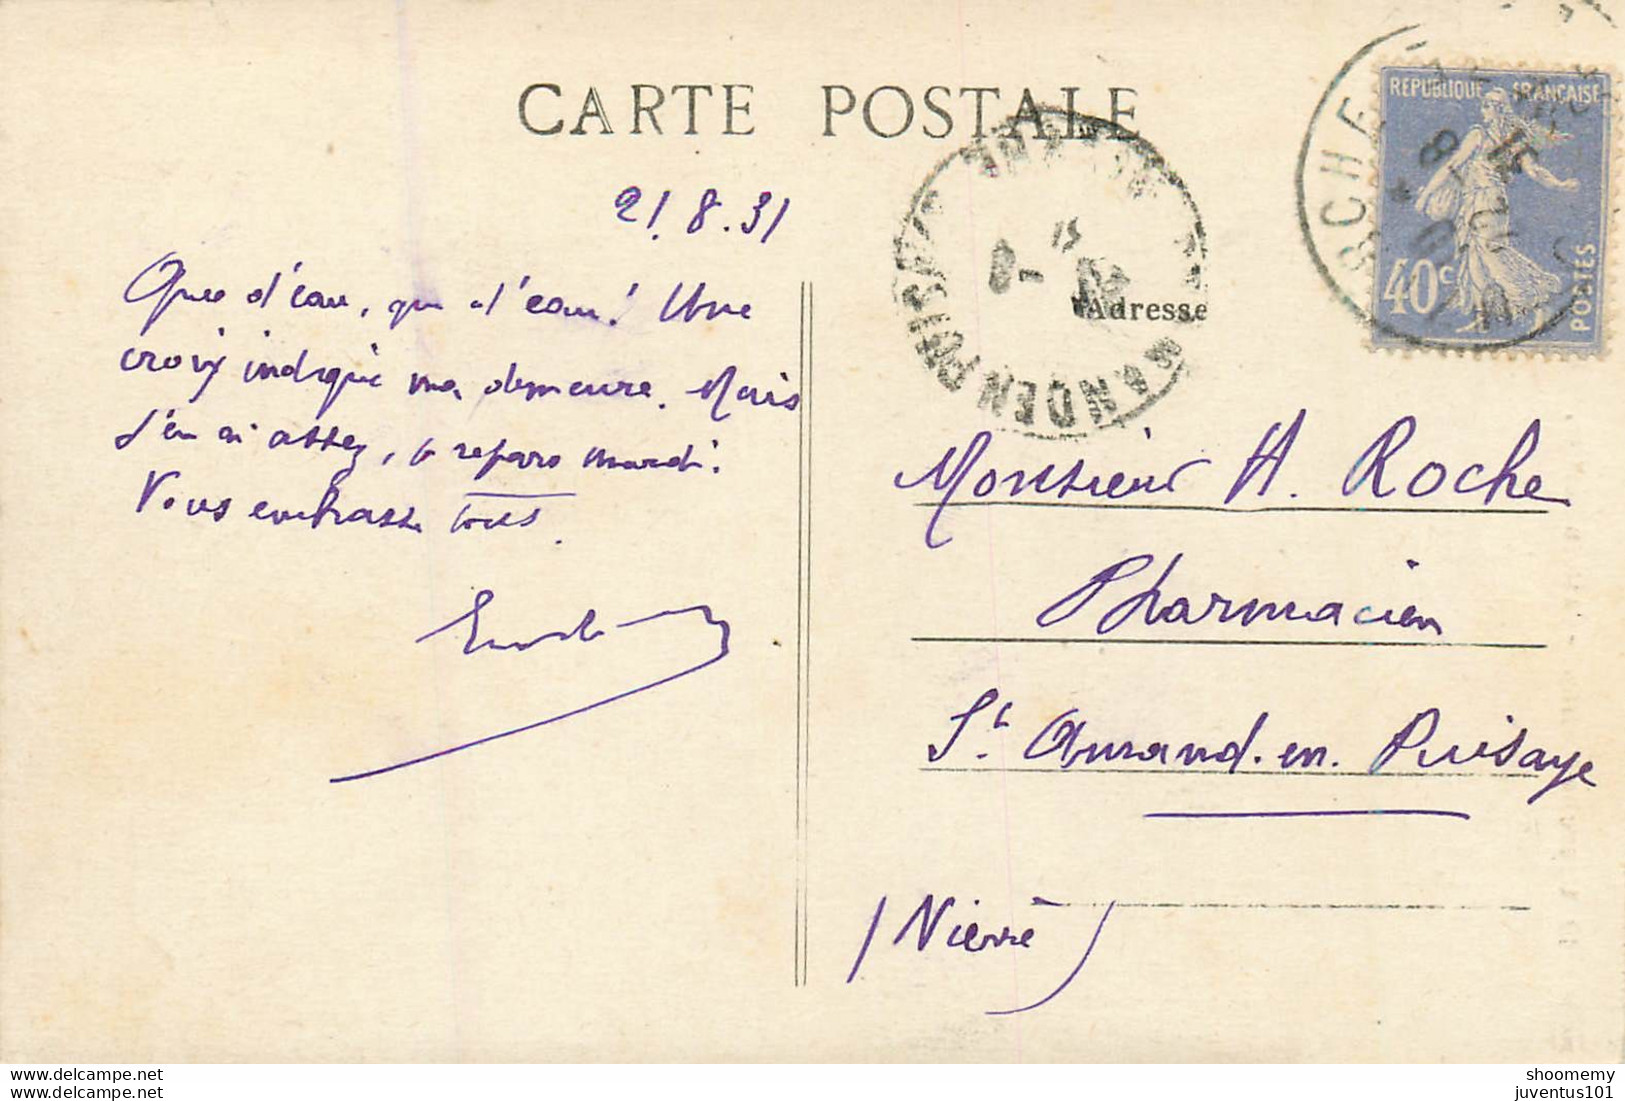 CARTE POSTALE
21.8.31
Que d'eau, que d'eau! Une
croix indique ma demeure. Mais
j'en ai assez, je repars mardi.
Vous embrasse tous.
REPUBLIQUE FRANÇAISE
40c
POSTES
Adresse
Monsieur H. Roche
Pharmacien
St Amand-en-Puisaye
(Nièvre)
www.delcampe.net
shoomemy
juventus101